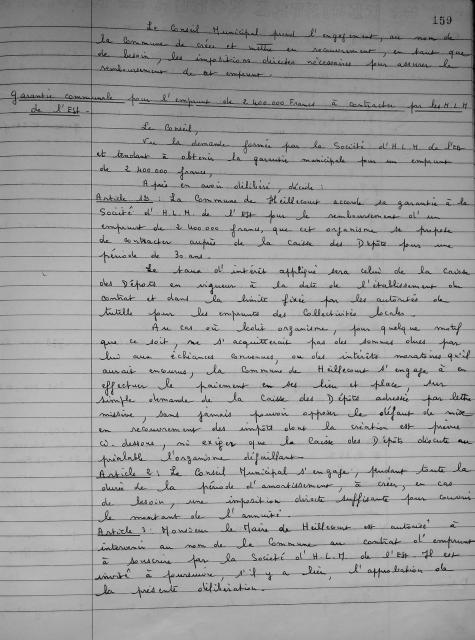 159
Le Conseil Municipal prend l'engagement, au nom de
la Commune de créer et mettre en recouvrement, en tant que
de besoin, les impositions directes nécessaires pour assurer le
remboursement de cet emprunt.
Garantie communale pour l'emprunt de 2 400.000 Francs à contracter par les H.L.M
de l'Est.
Le Conseil,
Vu la demande formée par la Société d'H.L.M. de l'Est
et tendant à obtenir la garantie municipale pour un emprunt
de 2 400 000 francs,
Après en avoir délibéré, décide :
Article 1er : La Commune de Heillecourt accorde sa garantie à la
Société d'H.L.M. de l'Est pour le remboursement d'un
emprunt de 2 400.000 francs, que cet organisme se propose
de contracter auprès de la Caisse des Dépôts pour une
période de 30 ans.
Le taux d'intérêt appliqué sera celui de la Caisse
des Dépôts en vigueur à la date de l'établissement du
contrat et dans la limite fixée par les autorités de
tutelle pour les emprunts des Collectivités locales.
Au cas où ledit organisme, pour quelque motif
que ce soit, ne s'acquitterait pas des sommes dues par
lui aux échéances convenues, ou des intérêts moratoires qu'il
aurait encourus, la Commune de Heillecourt s'engage à en
effectuer le paiement en ses lieu et place, sur
simple demande de la Caisse des Dépôts adressée par lettre
missive, sans jamais pouvoir opposer le défaut de mise
en recouvrement des impôts dont la création est prévue
ci-dessous, ni exiger que la Caisse des Dépôts discute au
préalable l'organisme défaillant.
Article 2 : Le Conseil Municipal s'engage, pendant toute la
durée de la période d'amortissement à créer, en cas
de besoin, une imposition directe suffisante pour couvrir
le montant de l'annuité.
Article 3 : Monsieur le Maire de Heillecourt est autorisé à
intervenir au nom de la Commune au contrat d'emprunt
à souscrire par la Société d'H.L.M. de l'Est. Il est
invité à poursuivre, s'il y a lieu, l'approbation de
la présente délibération.